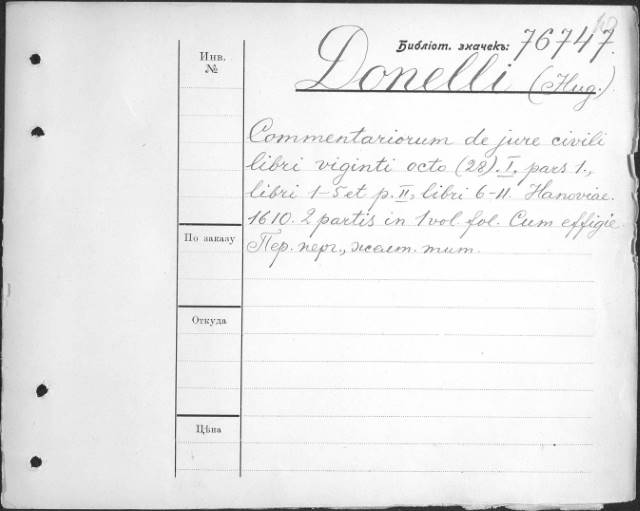 Библіот. значекъ: 76747.
Инв.
№
Donelli (Hug.)
Commentariorum de jure civili
libri viginti octo (28). I. pars 1.,
libri 1-5 et p. II, libri 6-11. Hanoviae.
1610. 2 partis in 1 vol. fol. Cum effigie.
По заказу
Пер. перг., желт. тит.
Откуда
Цѣна